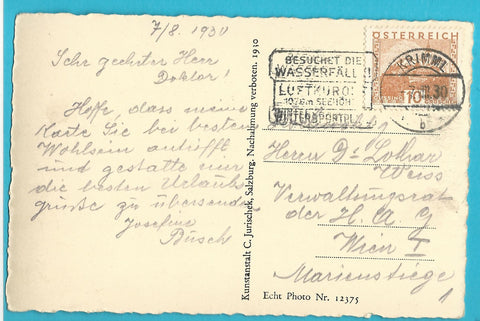 7/8. 1930
Sehr geehrter Herr
Doktor!
Hoffe, dass meine
Karte Sie bei bestem
Wohlsein antrifft
und gestatte mir
die besten Urlaubs-
grüße zu übersenden
Josefine
Busch
Kunstanstalt C. Jurischek, Salzburg. Nachahmung verboten. 1930
BESUCHET DIE
WASSERFÄLLE
LUFTKURORT
1076m SEEHÖH
WINTERSPORTPL
ÖSTERREICH
KRIMML
30
b
10
Herrn Dr Lothar
Weiss
Verwaltungsrat
der H. A. G
Wien I
Marienstiege 1
Echt Photo Nr. 12375